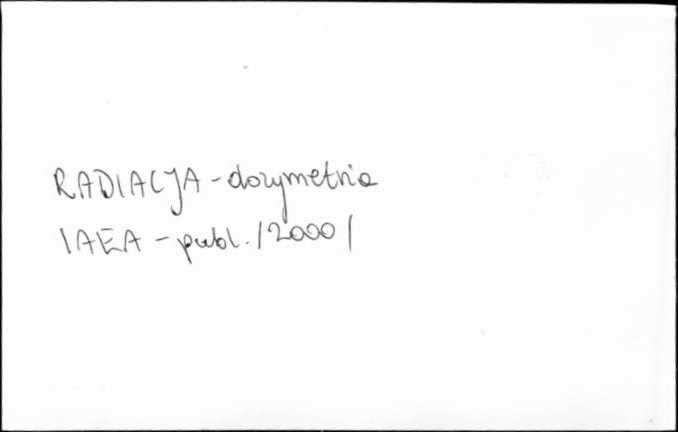 RADIACJA - dozymetria
IAEA - publ. /2000/